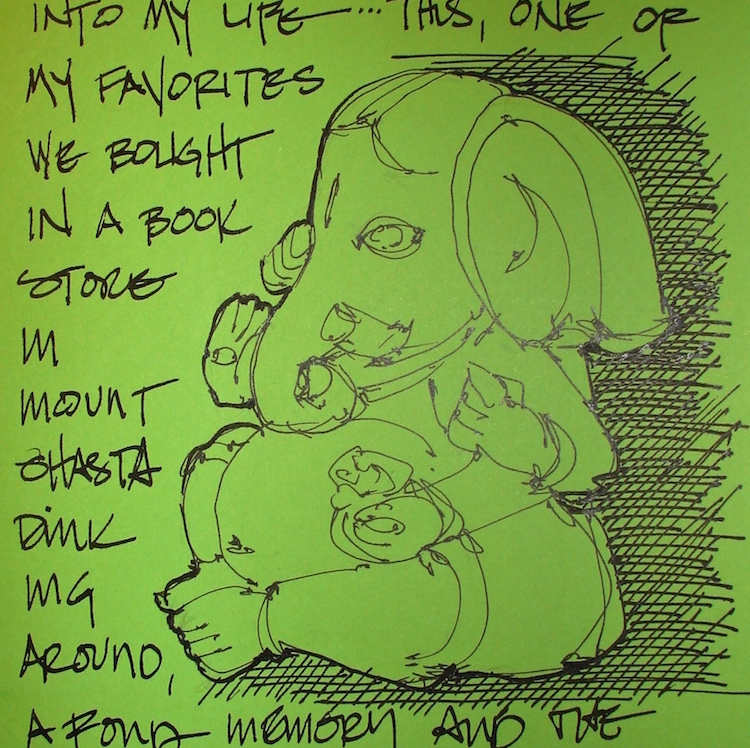 INTO MY LIFE... THIS, ONE OF
MY FAVORITES
WE BOUGHT
IN A BOOK
STORE
IN
MOUNT
SHASTA
DINK
ING
AROUND,
A FOND MEMORY AND THE